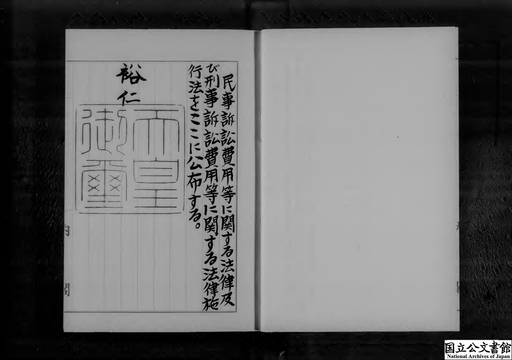 民事訴訟費用等に関する法律及
び刑事訴訟費用等に関する法律施
行法をここに公布する。
裕仁
天皇
御璽
内閣
国立公文書館
National Archives of Japan